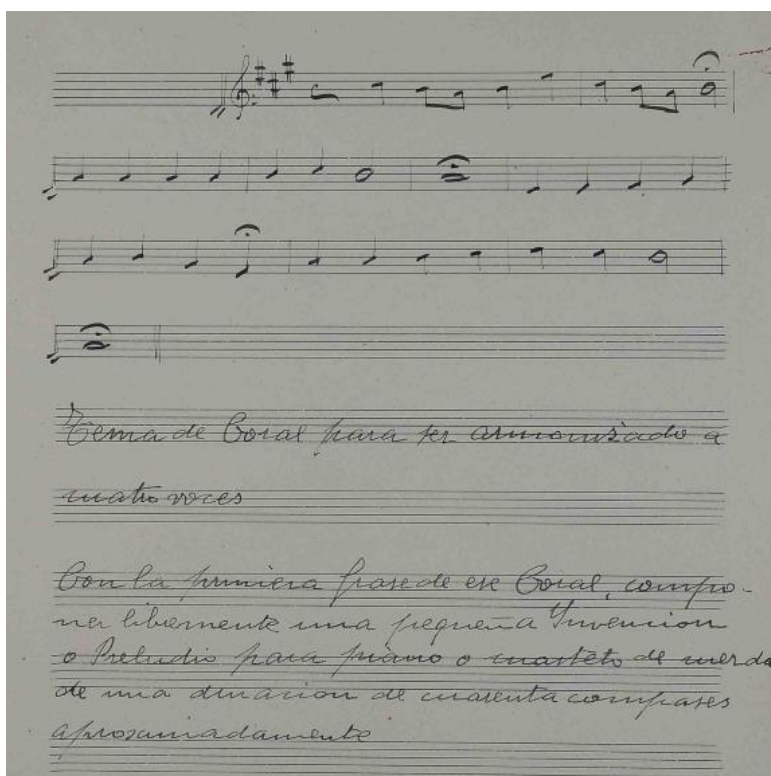 Tema de Coral para ser armonizado a
cuatro voces
Con la primera frase de ese Coral, compo-
ner libremente una pequeña Invencion
o Preludio para piano o cuarteto de cuerda
de una duracion de cuarenta compases
aproximadamente